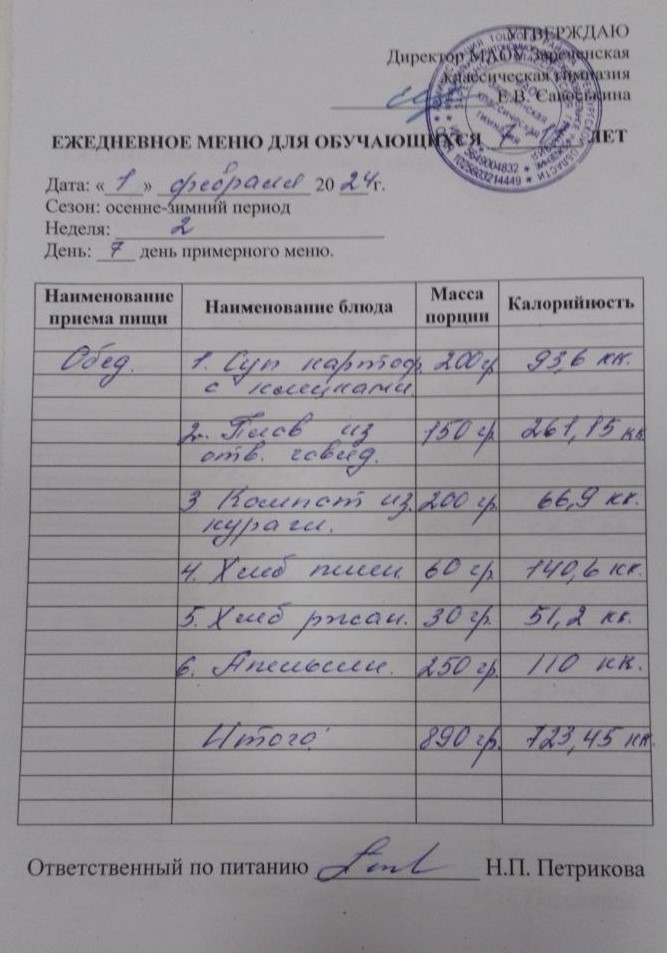 УТВЕРЖДАЮ
Директор МАОУ Зареченская
классическая гимназия
Е.В. Саюськина
ЕЖЕДНЕВНОЕ МЕНЮ ДЛЯ ОБУЧАЮЩИХСЯ 7 ЛЕТ
Дата: « 1 » февраля 20 24 г.
Сезон: осенне-зимний период
Неделя: 2
День: 7 день примерного меню.
Наименование приема пищи Наименование блюда Масса порции Калорийность
Обед. 1. Суп картоф. 200 гр 93,6 кк.
с клецками
2. Плов из 150 гр. 261,15 кк
отв. говяд.
3 Компот из 200 гр. 66,9 кк.
кураги.
4. Хлеб пшен. 60 гр. 140,6 кк.
5. Хлеб ржан. 30 гр. 51,2 кк.
6. Апельсин. 250 гр. 110 кк.
Итого: 890 гр. 723,45 кк.
Ответственный по питанию Н.П. Петрикова
5649004832
1025603214449